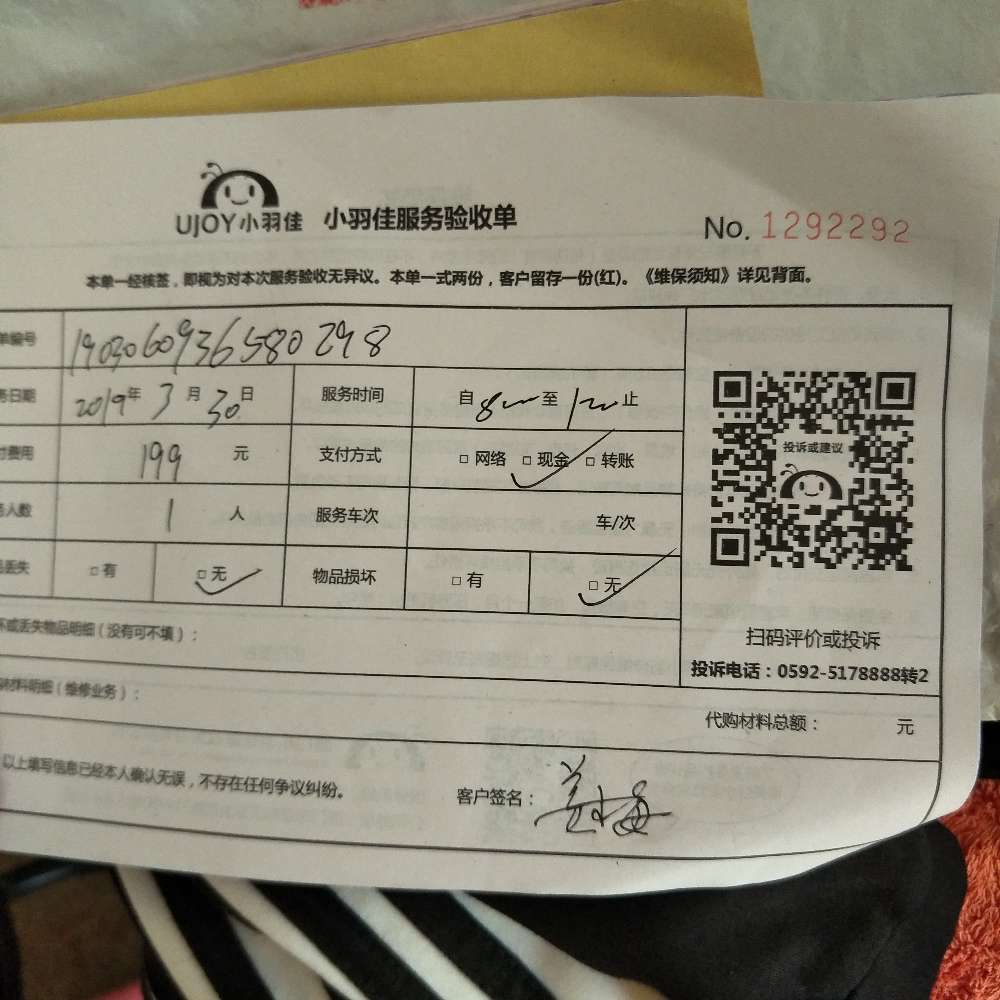 UJOY小羽佳 小羽佳服务验收单 No. 1292292
本单一经核签，即视为对本次服务验收无异议。本单一式两份，客户留存一份(红)。《维保须知》详见背面。
单编号 1903060936580298
务日期 2019年 3月 30日 服务时间 自 至 止
付费用 199 元 支付方式 □网络 □现金 □转账
务人数 1 人 服务车次 车/次
品丢失 □有 □无 物品损坏 □有 □无
投诉或建议
扫码评价或投诉
投诉电话：0592-5178888转2
坏或丢失物品明细（没有可不填）：
材料明细（维修业务）：
代购材料总额： 元
以上填写信息已经本人确认无误，不存在任何争议纠纷。
客户签名：